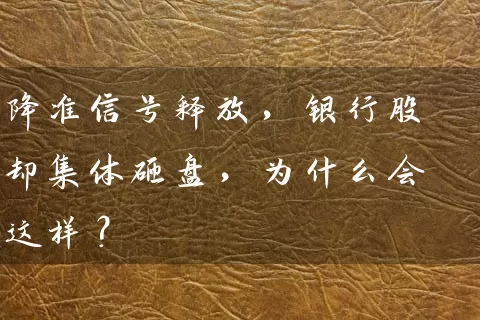 降准信号释放，银行股
却集体砸盘，为什么会
这样？